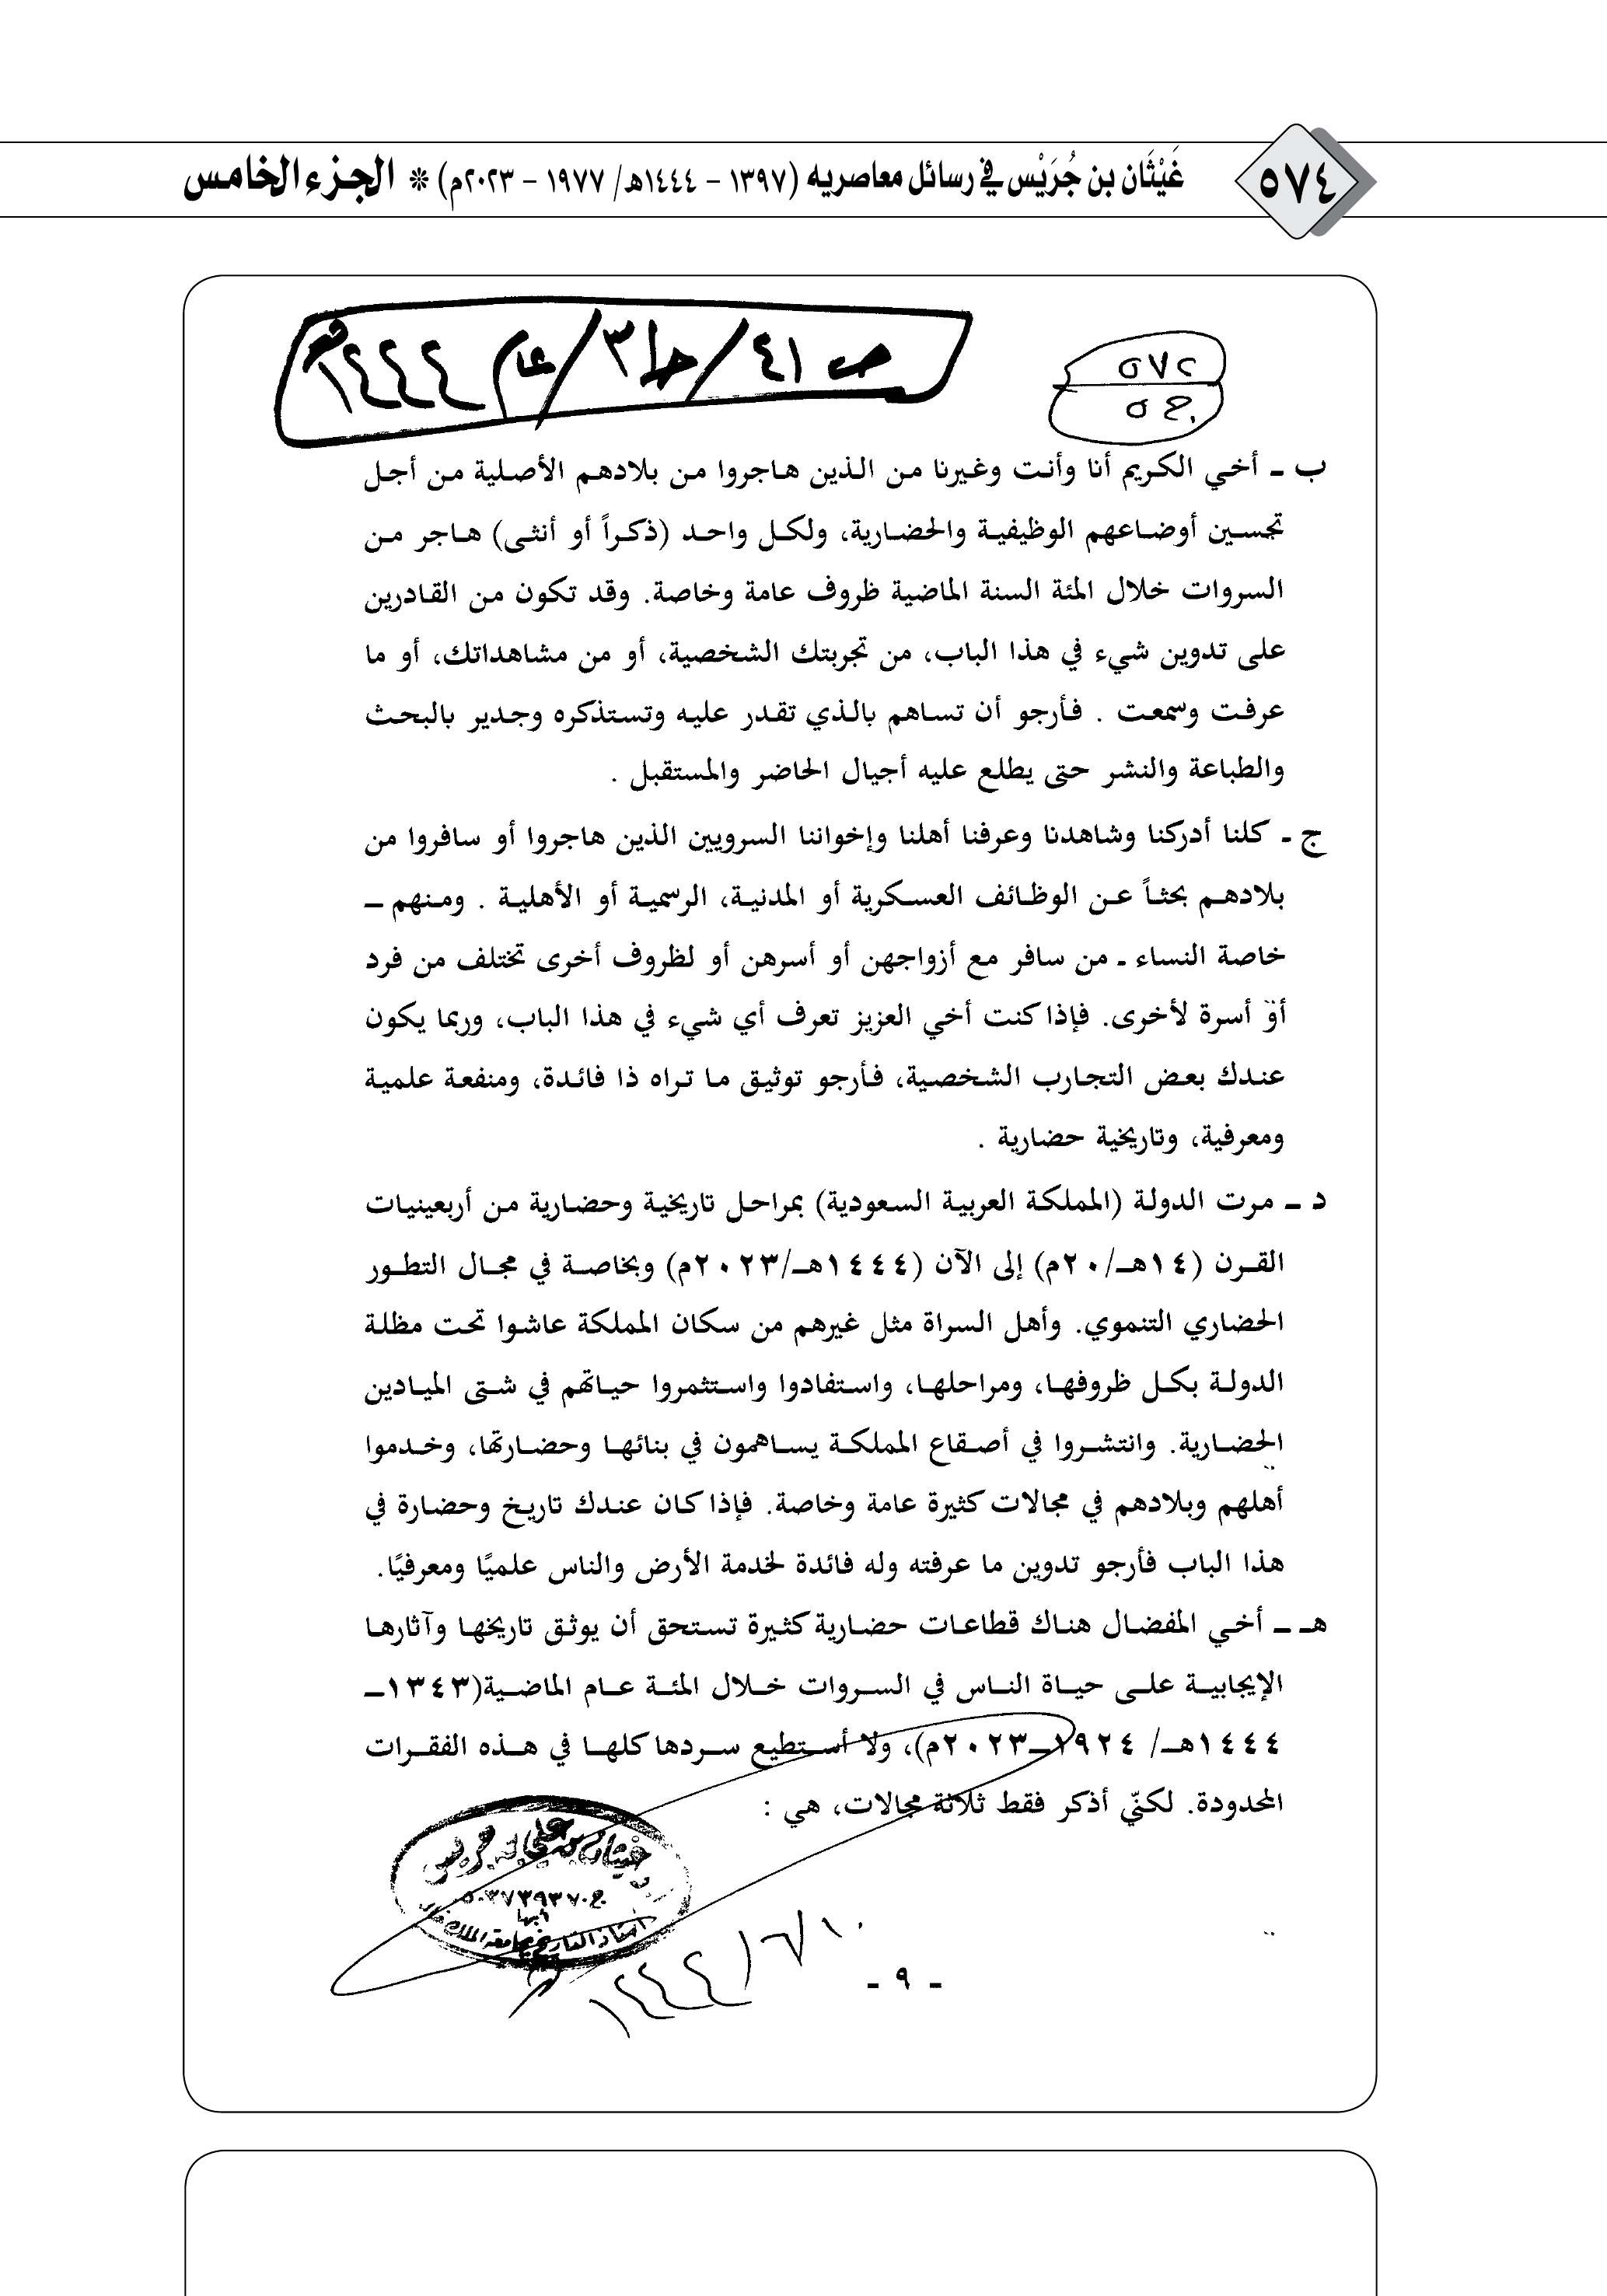 ٥٧٤
غَيْثَان بن جُرَيْس في رسائل معاصريه (١٣٩٧ – ١٤٤٤هـ/ ١٩٧٧ – ٢٠٢٣م) * الجزء الخامس
ص ٤١/ح٣/عام ١٤٤٤هـ
٥٧٢
ج ٥
ب ـ أخي الكريم أنا وأنت وغيرنا من الذين هاجروا من بلادهم الأصلية من أجل
تحسين أوضاعهم الوظيفية والحضارية، ولكل واحد (ذكراً أو أنثى) هاجر من
السروات خلال المئة السنة الماضية ظروف عامة وخاصة. وقد تكون من القادرين
على تدوين شيء في هذا الباب، من تجربتك الشخصية، أو من مشاهداتك، أو ما
عرفت وسمعت . فأرجو أن تساهم بالذي تقدر عليه وتستذكره وجدير بالبحث
والطباعة والنشر حتى يطلع عليه أجيال الحاضر والمستقبل .
ج ـ كلنا أدركنا وشاهدنا وعرفنا أهلنا وإخواننا السرويين الذين هاجروا أو سافروا من
بلادهم بحثاً عن الوظائف العسكرية أو المدنية، الرسمية أو الأهلية . ومنهم ـ
خاصة النساء ـ من سافر مع أزواجهن أو أسرهن أو لظروف أخرى تختلف من فرد
أو أسرة لأخرى. فإذا كنت أخي العزيز تعرف أي شيء في هذا الباب، وربما يكون
عندك بعض التجارب الشخصية، فأرجو توثيق ما تراه ذا فائدة، ومنفعة علمية
ومعرفية، وتاريخية حضارية .
د ـ مرت الدولة (المملكة العربية السعودية) بمراحل تاريخية وحضارية من أربعينيات
القرن (١٤هـ/٢٠م) إلى الآن (١٤٤٤هـ/٢٠٢٣م) وبخاصة في مجال التطور
الحضاري التنموي. وأهل السراة مثل غيرهم من سكان المملكة عاشوا تحت مظلة
الدولة بكل ظروفها، ومراحلها، واستفادوا واستثمروا حياتهم في شتى الميادين
الحضارية. وانتشروا في أصقاع المملكة يساهمون في بنائها وحضارتها، وخدموا
أهلهم وبلادهم في مجالات كثيرة عامة وخاصة. فإذا كان عندك تاريخ وحضارة في
هذا الباب فأرجو تدوين ما عرفته وله فائدة لخدمة الأرض والناس علميًا ومعرفيًا.
هـ ـ أخي المفضال هناك قطاعات حضارية كثيرة تستحق أن يوثق تاريخها وآثارها
الإيجابية على حياة الناس في السروات خلال المئة عام الماضية(١٣٤٣ـ
١٤٤٤هـ/ ١٩٢٤ـ٢٠٢٣م)، ولا أستطيع سردها كلها في هذه الفقرات
المحدودة. لكنّي أذكر فقط ثلاثة مجالات، هي :
غيثان بن علي بن جريس
ج٠٥٠٣٧٣٩٣٧
أبها
أستاذ التاريخ بجامعة الملك خالد
١٤٤٤/٦/١٠
ـ ٩ ـ